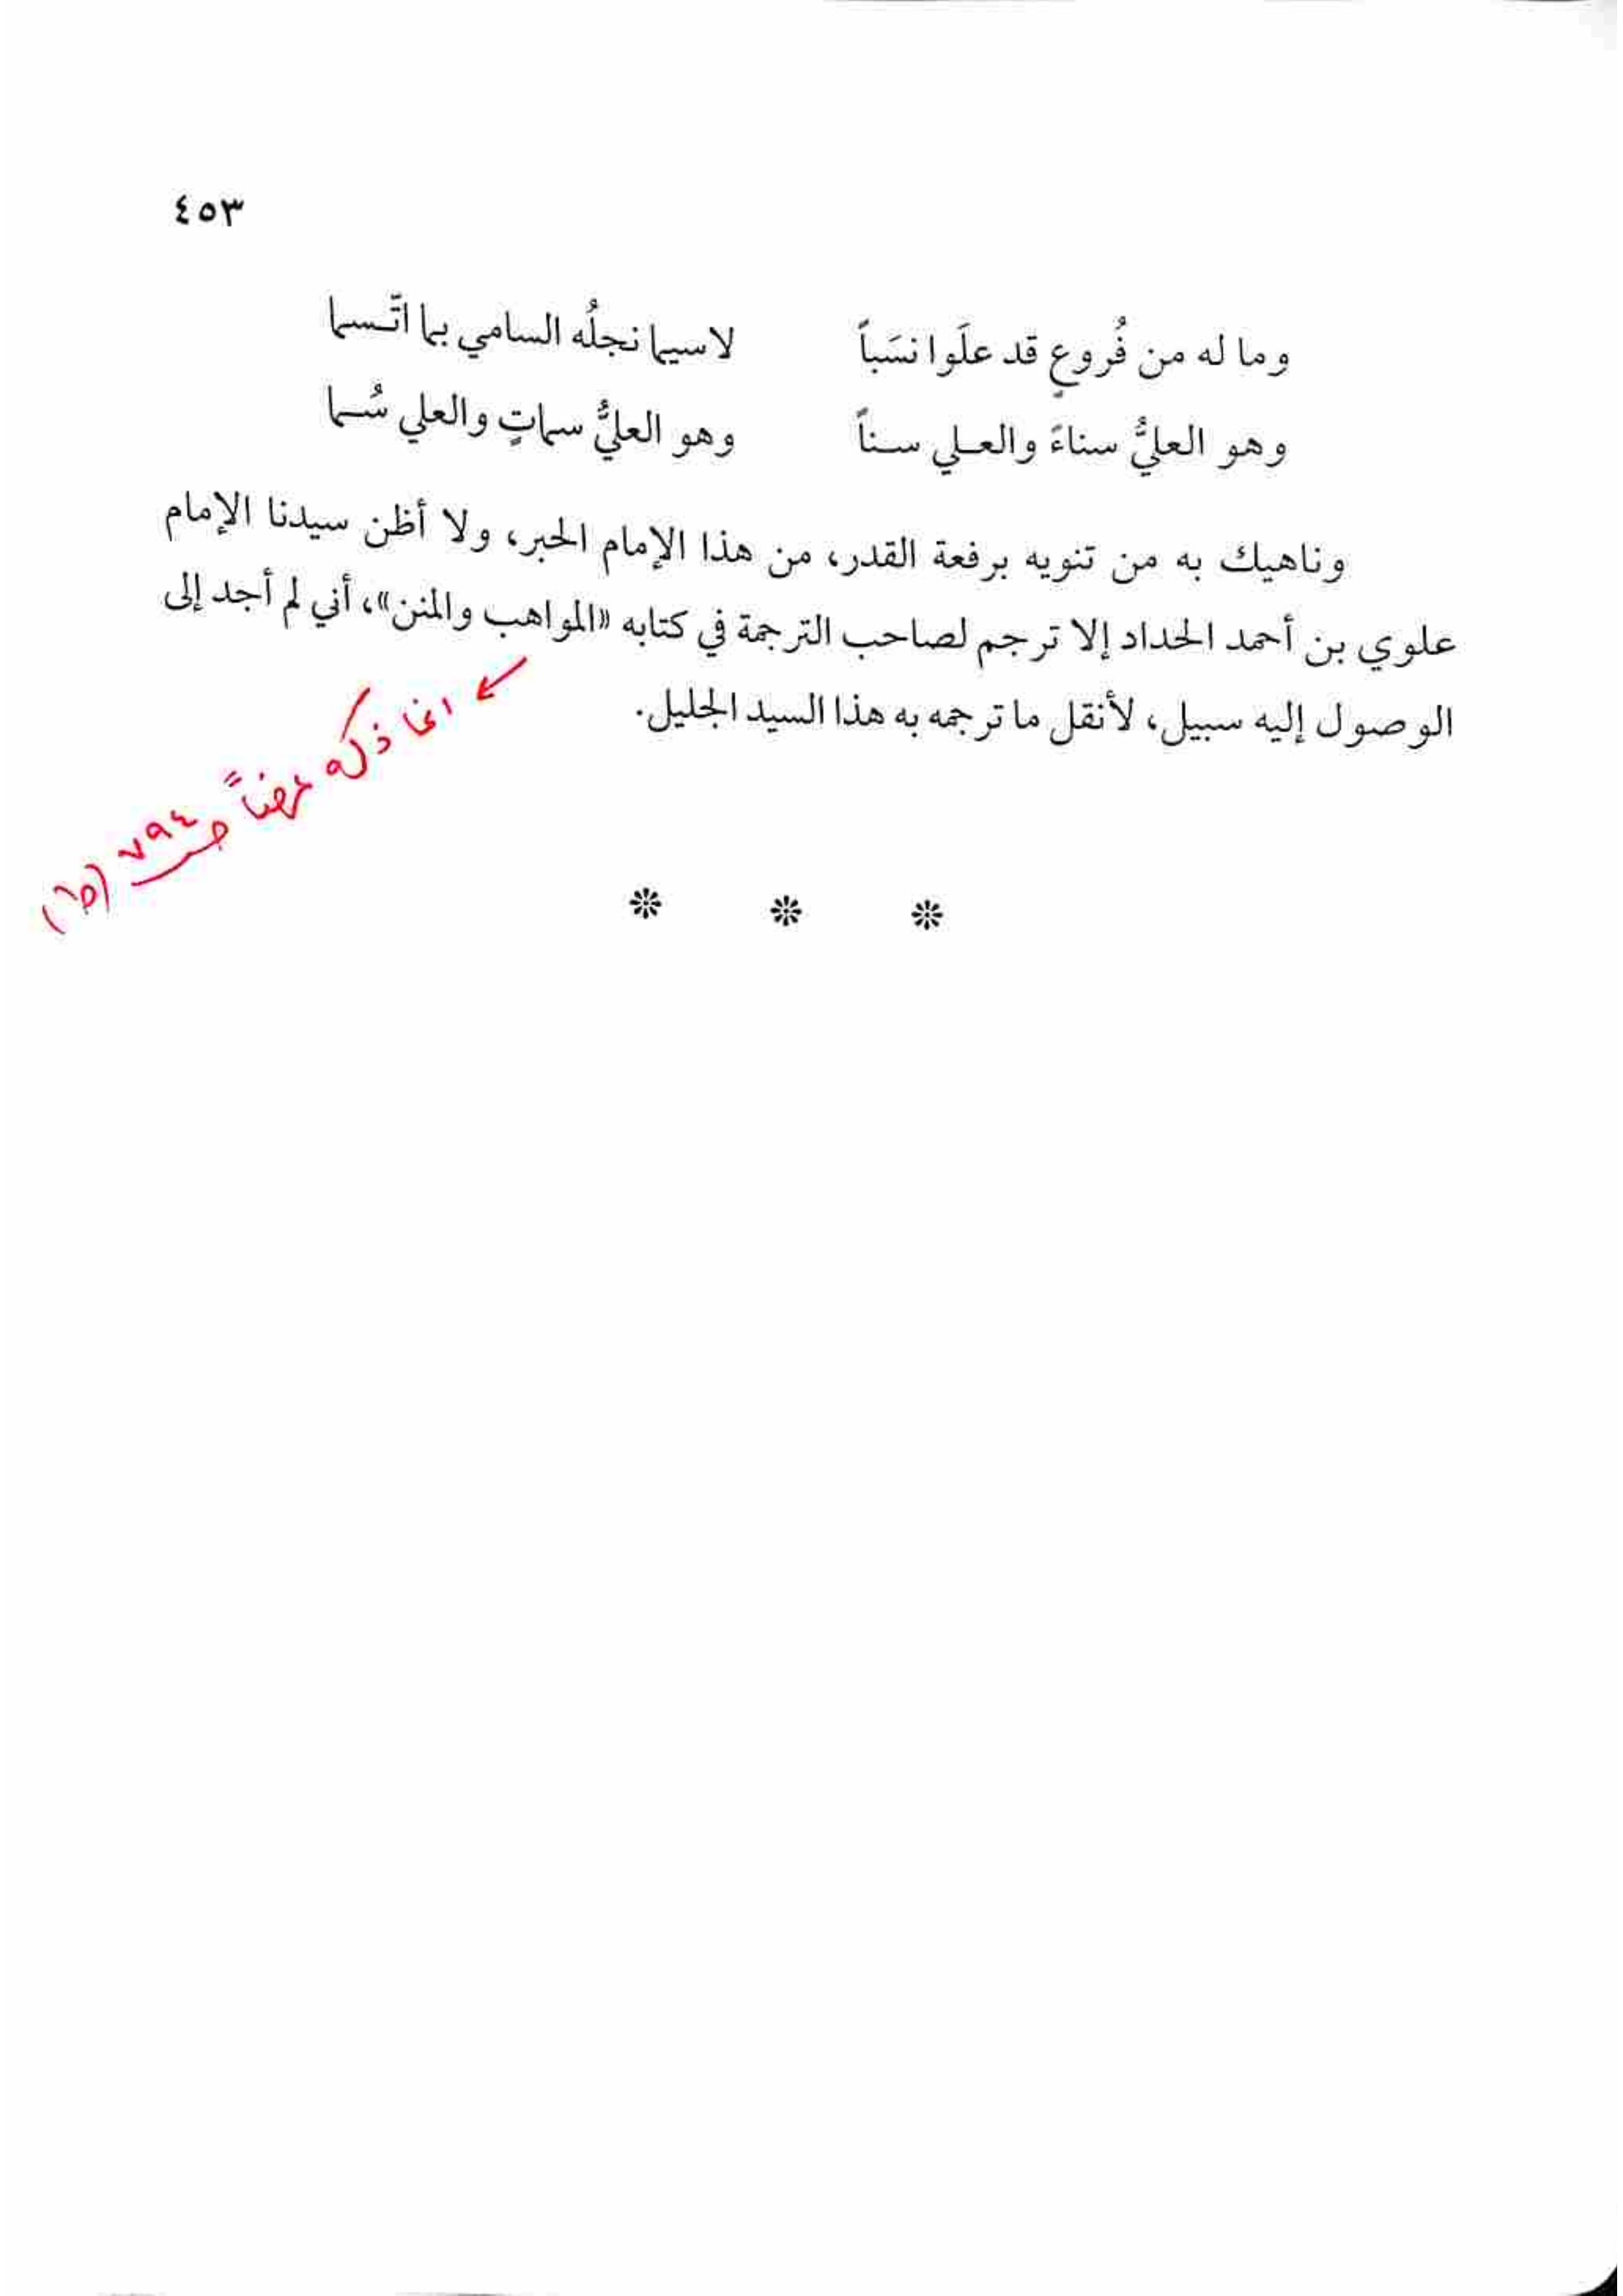 ٤٥٣
وما له من فُروعٍ قد علَوا نسَباً لاسيما نجلُه السامي بما اتّسما
وهو العليُّ سناءً والعلي سناً وهو العليُّ سماتٍ والعلي سُما
وناهيك به من تنويه برفعة القدر، من هذا الإمام الحبر، ولا أظن سيدنا الإمام
علوي بن أحمد الحداد إلا ترجم لصاحب الترجمة في كتابه «المواهب والمنن»، أني لم أجد إلى
الوصول إليه سبيل، لأنقل ما ترجمه به هذا السيد الجليل.
انما ذكره عرضاً صـ ٧٩٤
* * *